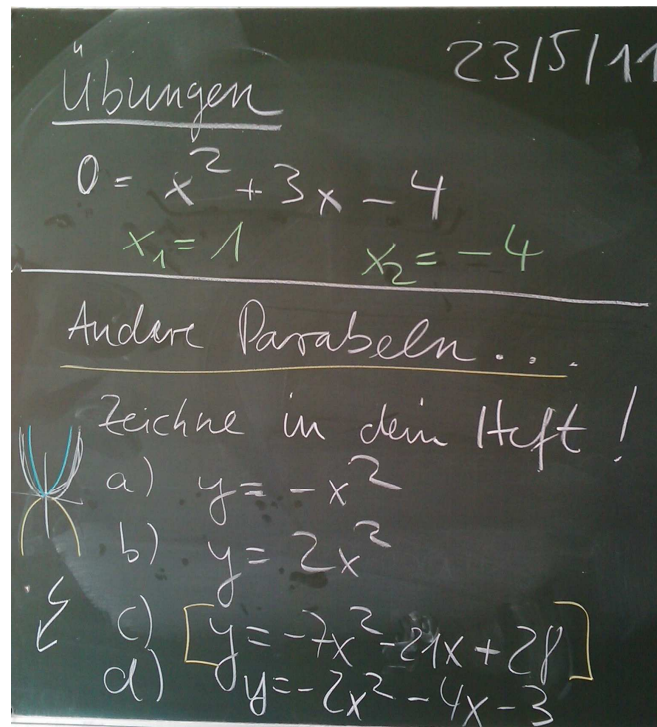 23/5/11
Übungen
0 = x² + 3x - 4
x₁ = 1 x₂ = -4
Andere Parabeln...
Zeichne in dein Heft!
a) y = -x²
b) y = 2x²
c) [y = -7x² - 21x + 28]
d) y = -2x² - 4x - 3